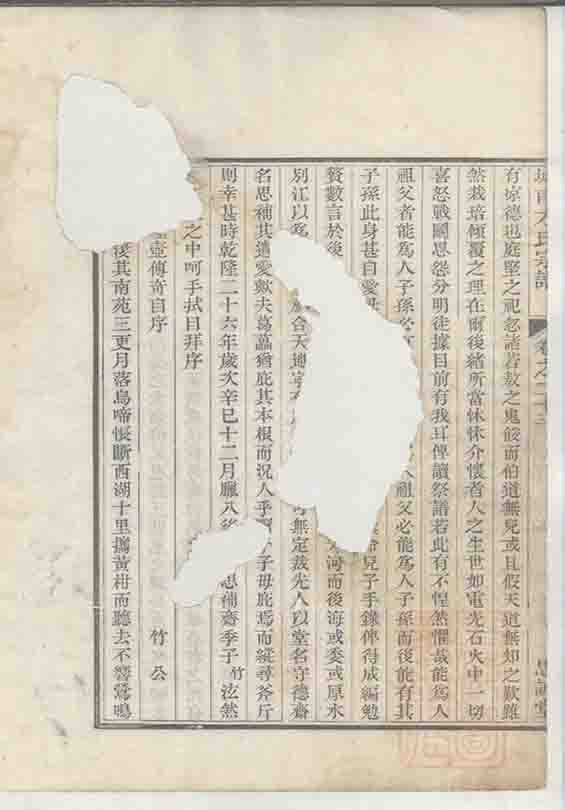 氏宗譜
卷之二十三
有凉德也庭堅之祀忽諸若敖之鬼餒而伯道無兒或且假天道無知之歎雖
然栽培傾覆之理在爾後緒所當怵怵介懷者人之生世如電光石火中一切
喜怒戰鬬恩怨分明徒據目前有我耳俾讀祭譜若此有不惺然懼哉能爲人
祖父者能爲人子孫必 人祖父必能爲人子孫而後能有其
子孫此身甚自愛 兒子手錄俾得成編勉
贅數言於後 河而後海或委或原水
別江以爲 合天地 無定裁先人以堂名守德齋
名思補其遺愛歟夫葛藟猶庇其本根而況人乎 子毋庇焉而縱尋斧斤
則幸甚時乾隆二十六年歲次辛巳十二月臘八後 思補齋季子竹泫然
之中呵手拭目拜序
壺傳奇自序
竹公
接其南苑三更月落烏啼悵斷西湖十里攜黃柑而聽去不響鶯鳴